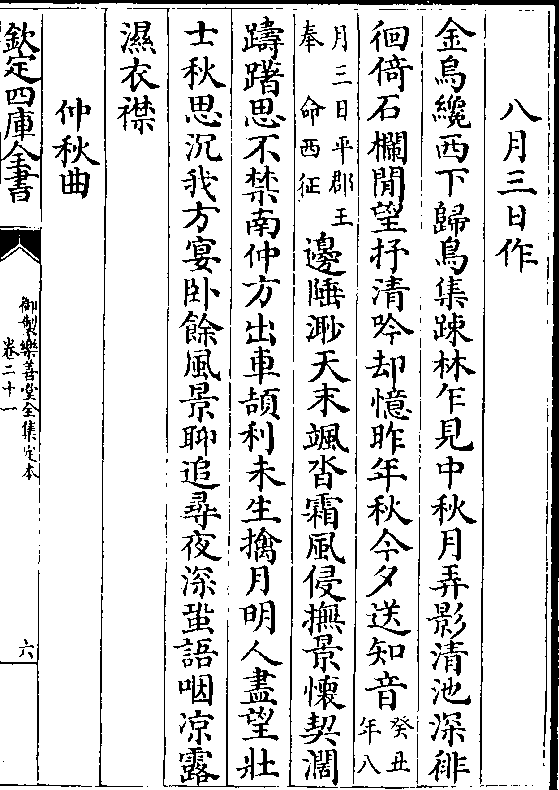 八月三日作
金烏纔西下歸鳥集踈林乍見中秋月弄影清池深徘
徊倚石欄閒望抒清吟却憶昨年秋今夕送知音癸丑年八
月三日平郡王奉命西征邊陲渺天末颯沓霜風侵撫景懷契濶
躊躇思不禁南仲方出車頡利未生擒月明人盡望壯
士秋思沉我方宴卧餘風景聊追尋夜深蛩語咽凉露
濕衣襟
仲秋曲
欽定四庫全書
御製樂善堂全集定本
卷二十一
六